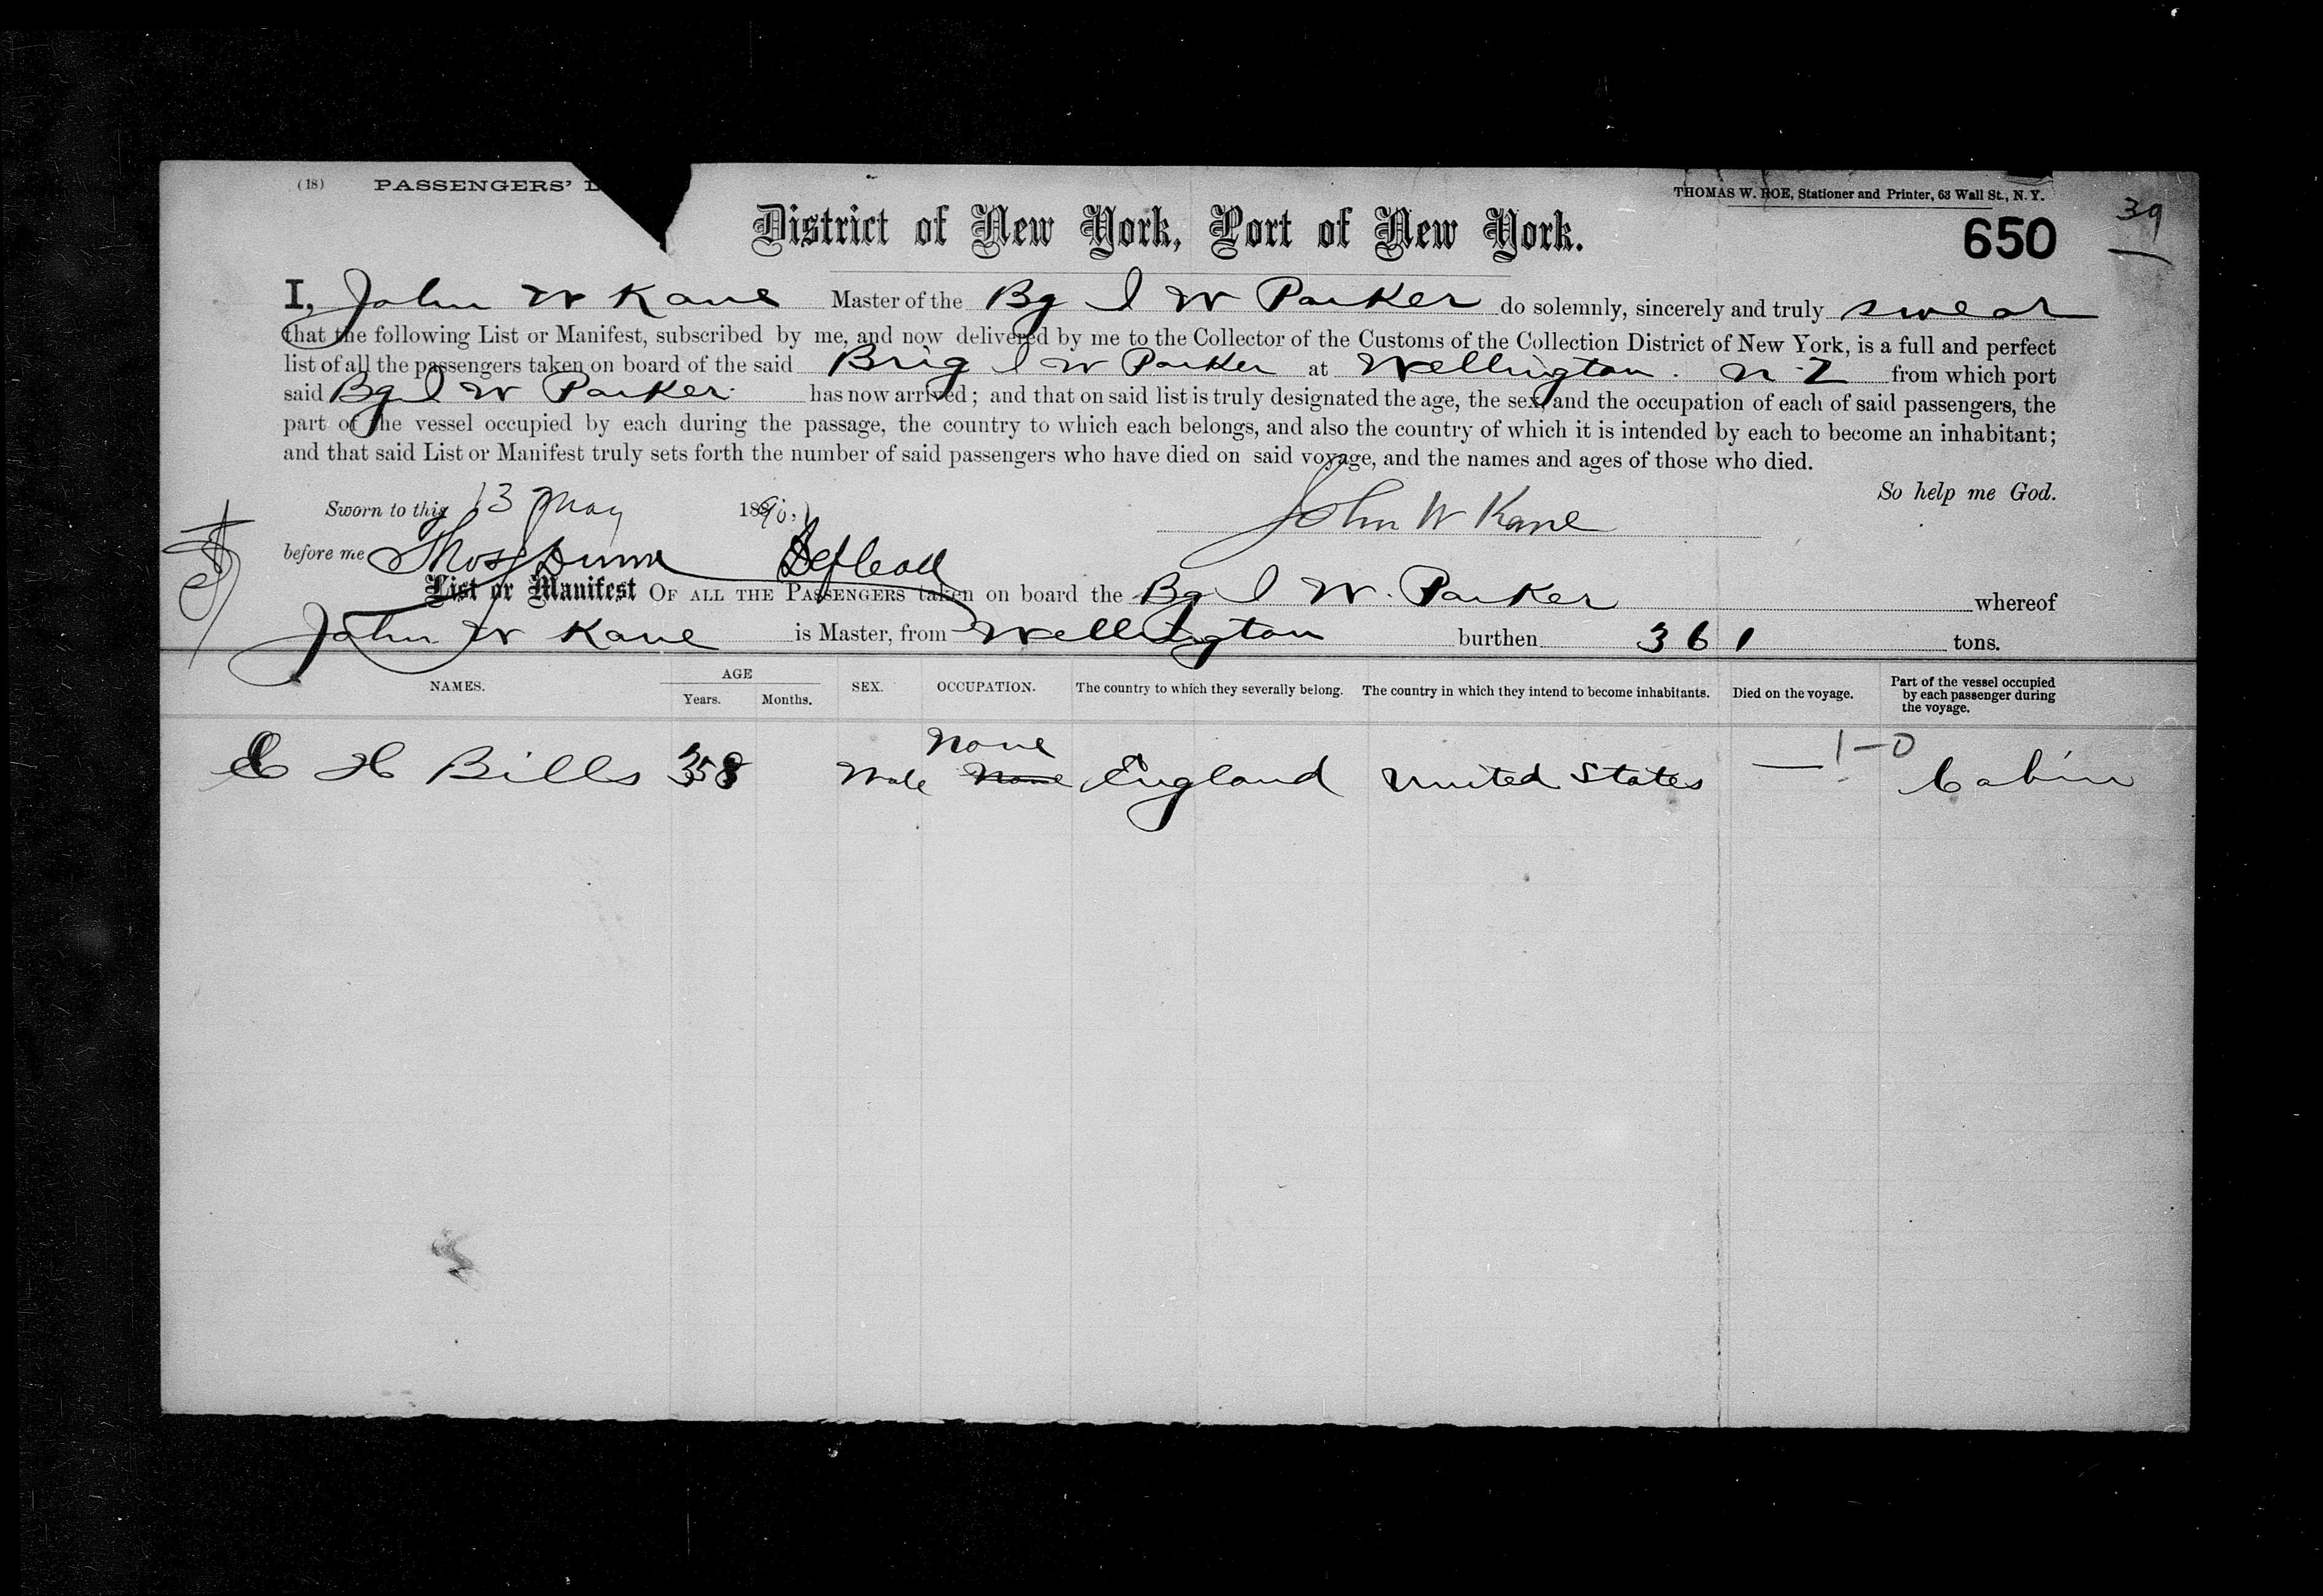 (18) PASSENGERS' L
THOMAS W. ROE, Stationer and Printer, 63 Wall St., N. Y.
39
District of New York, Port of New York.
650
I, John W Kane Master of the Bg I W Parker do solemnly, sincerely and truly swear
that the following List or Manifest, subscribed by me, and now delivered by me to the Collector of the Customs of the Collection District of New York, is a full and perfect
list of all the passengers taken on board of the said Brig I W Parker at Wellington. N. Z from which port
said Bg I W Parker has now arrived; and that on said list is truly designated the age, the sex, and the occupation of each of said passengers, the
part of the vessel occupied by each during the passage, the country to which each belongs, and also the country of which it is intended by each to become an inhabitant;
and that said List or Manifest truly sets forth the number of said passengers who have died on said voyage, and the names and ages of those who died.
So help me God.
Sworn to this 13 May 1890.
John W Kane
before me Thos Dunn
List or Manifest OF ALL THE PASSENGERS taken on board the Bg I W. Parker whereof
John W Kane is Master, from Wellington burthen 361 tons.
NAMES. AGE Years. Months. SEX. OCCUPATION. The country to which they severally belong. The country in which they intend to become inhabitants. Died on the voyage. Part of the vessel occupied by each passenger during the voyage.
None
H Bills Male None England United States — 1–0 Cabin